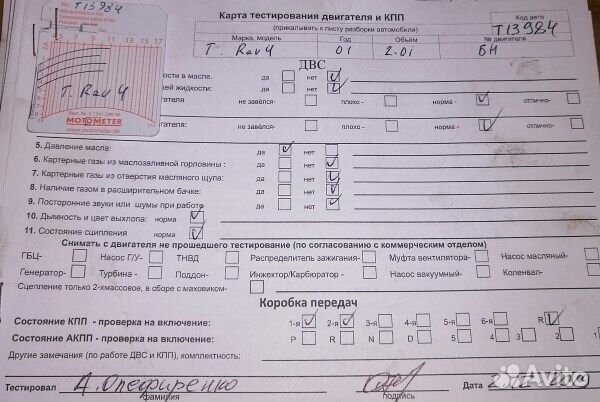 No. T13984
5 7 9 11 13 15 17
T. Rav 4
MOTOMETER
www.motometer.de
Карта тестирования двигателя и КПП
(прикалывать к листу разборки автомобиля)
Код авто
T13984
Марка, модель Год Объём № двигателя
T. Rav 4 01 2.0i БН
ДВС
ости в масле. да нет
щей жидкости: да нет
гателя не завёлся- плохо - норма - отлично-
гателя: не завёлся- плохо - норма - отлично-
5. Давление масла: да нет
6. Картерные газы из маслозаливной горловины : да нет
7. Картерные газы из отверстия масляного щупа: да нет
8. Наличие газом в расширительном бачке: да нет
9. Посторонние звуки или шумы при работе да нет
10. Дымность и цвет выхлопа: норма
11. Состояние сцепления норма
Снимать с двигателя не прошедшего тестирование (по согласованию с коммерческим отделом)
ГБЦ- Насос Г/У- ТНВД Распределитель зажигания- Муфта вентилятора- Насос масляный-
Генератор- Турбина - Поддон- Инжектор/Карбюратор - Насос вакуумный- Коленвал-
Сцепление только 2-хмассовое, в сборе с маховиком-
Коробка передач
Состояние КПП - проверка на включение: 1-я 2-я 3-я 4-я 5-я 6-я R
Состояние АКПП - проверка на включение: P R N D 4 3 2 1
Другие замечания (по работе ДВС и КПП), комплектность:
Тестировал А. Опефиренко Дата
фамилия подпись
Avito